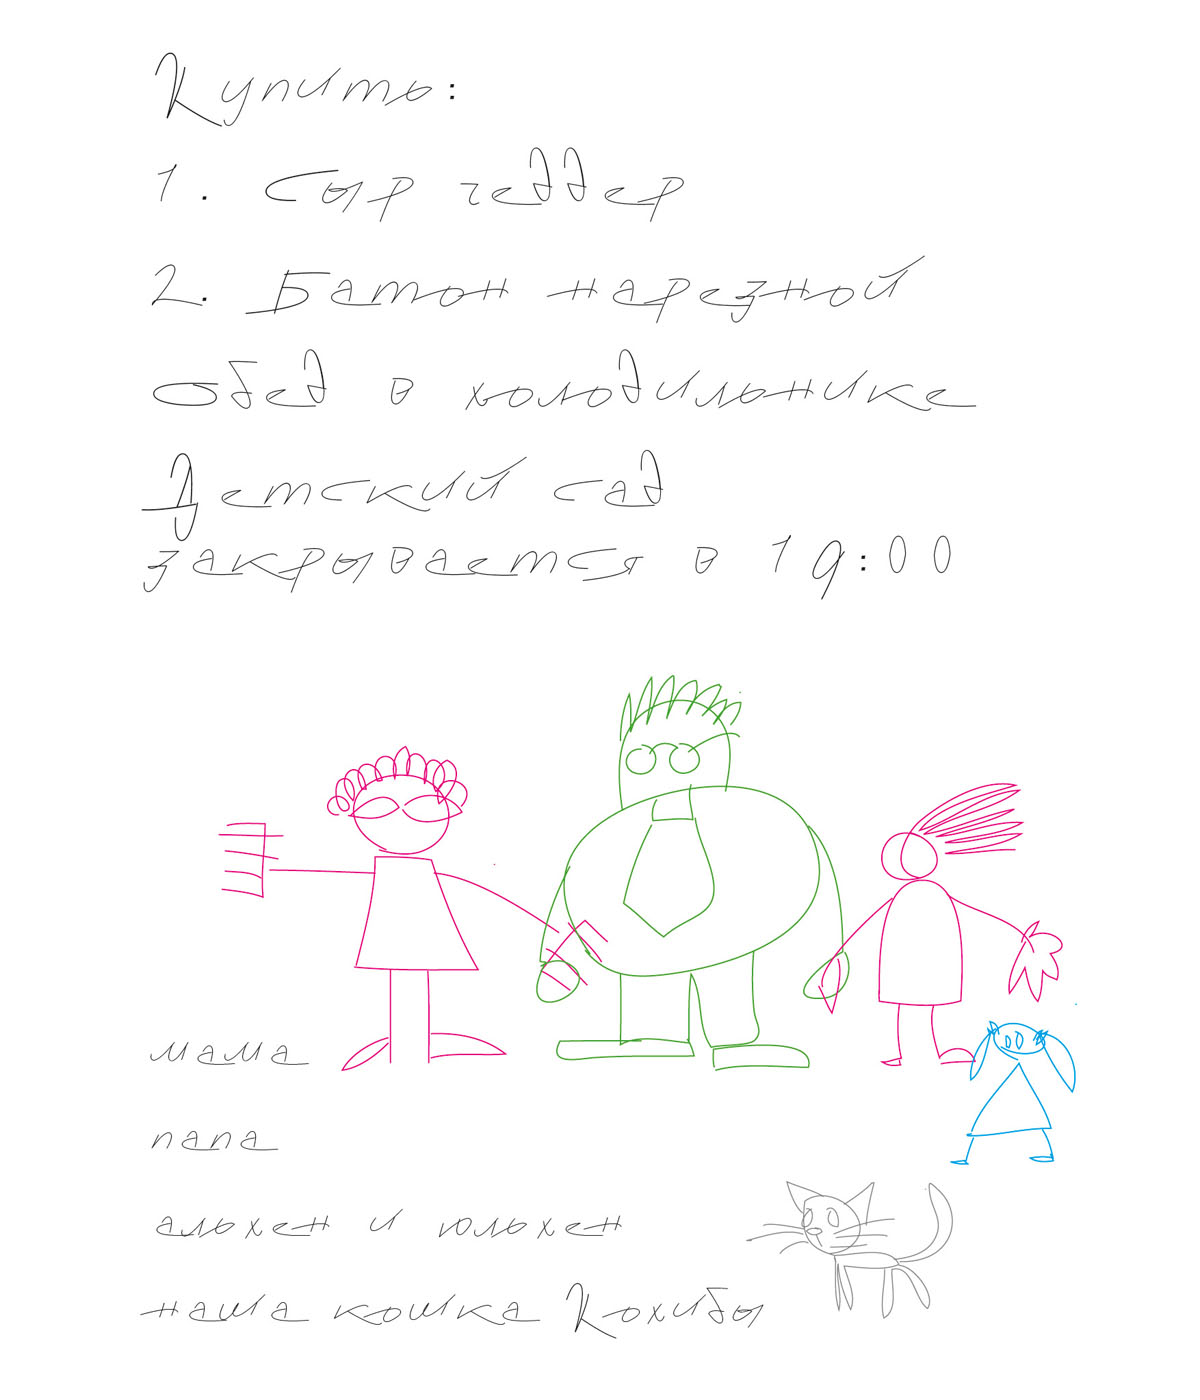 Купить:
1. Сыр чеддер
2. Батон нарезной
Обед в холодильнике
Детский сад
закрывается в 19:00
мама
папа
альхен и юльхен
наша кошка Кохибы